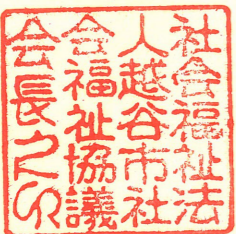 社会福祉法
人越谷市社
会福祉協議
会長之印